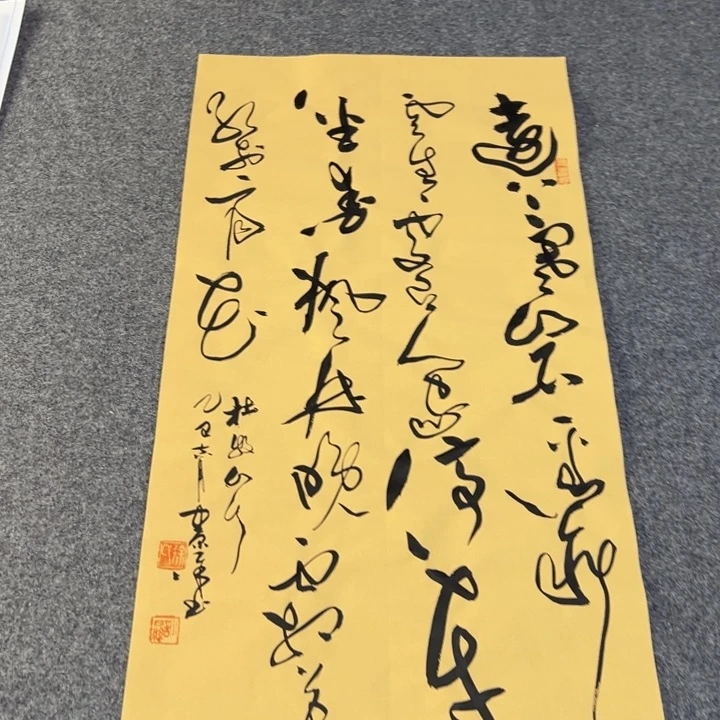 遠上寒山石徑斜
雲生處有人家停車
坐愛楓林晚霜葉
紅於二月花
杜牧山行
六月